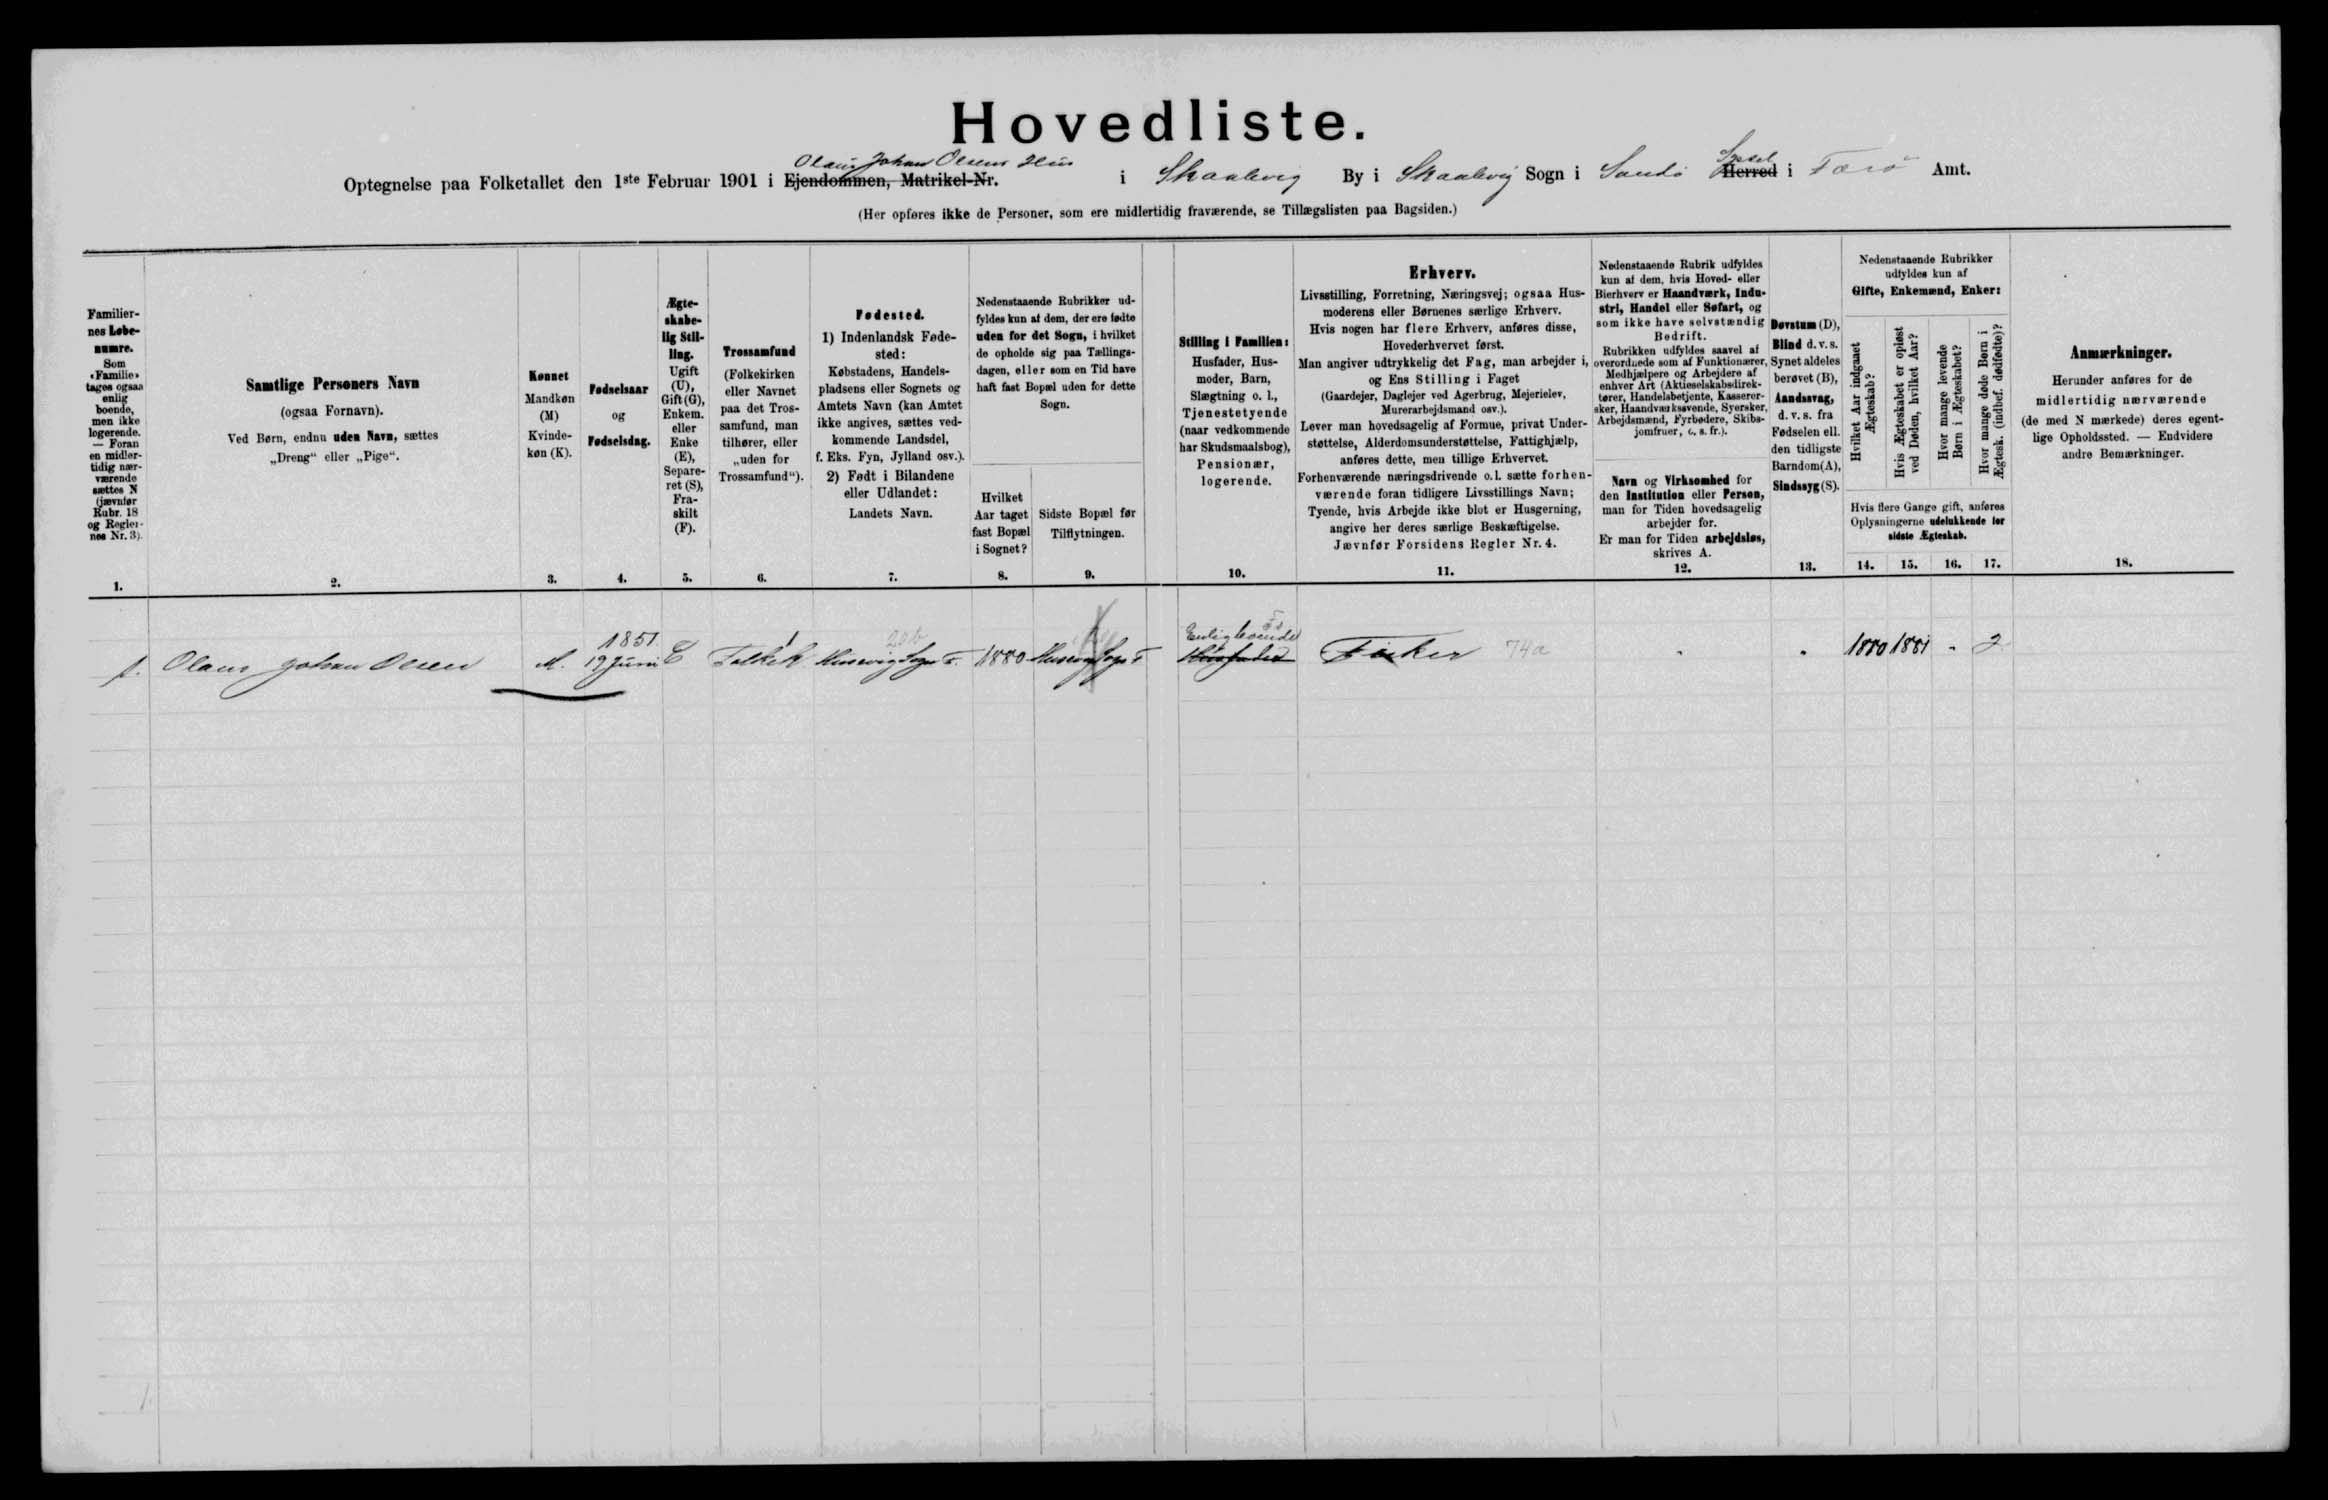 Hovedliste.
Olaus Johan Olsens Hus
Optegnelse paa Folketallet den 1ste Februar 1901 i Ejendommen, Matrikel-Nr. i Skaalevig By i Skaalevig Sogn i Sandø Herred Syssel i Færø Amt.
(Her opføres ikke de Personer, som ere midlertidig fraværende, se Tillægslisten paa Bagsiden.)
Familiernes Løbenumre.
Som «Familie» tages ogsaa enlig boende, men ikke logerende. — Foran en midlertidig nærværende sættes N (jævnfør Rubr. 18 og Reglernes Nr. 3).
1.
Samtlige Personers Navn
(ogsaa Fornavn).
Ved Børn, endnu uden Navn, sættes
„Dreng“ eller „Pige“.
2.
Kønnet
Mandkøn
(M)
Kvinde-
køn (K).
3.
Fødselsaar
og
Fødselsdag.
4.
Ægte-
skabe-
lig Stil-
ling.
Ugift
(U),
Gift (G),
Enkem.
eller
Enke
(E),
Separe-
ret (S),
Fra-
skilt
(F).
5.
Trossamfund
(Folkekirken
eller Navnet
paa det Tros-
samfund, man
tilhører, eller
„uden for
Trossamfund“).
6.
Fødested.
1) Indenlandsk Føde-
sted:
Købstadens, Handels-
pladsens eller Sognets og
Amtets Navn (kan Amtet
ikke angives, sættes ved-
kommende Landsdel,
f. Eks. Fyn, Jylland osv.).
2) Født i Bilandene
eller Udlandet:
Landets Navn.
7.
Nedenstaaende Rubrikker ud-
fyldes kun af dem, der ere fødte
uden for det Sogn, i hvilket
de opholde sig paa Tællings-
dagen, eller som en Tid have
haft fast Bopæl uden for dette
Sogn.
Hvilket
Aar taget
fast Bopæl
i Sognet?
8.
Sidste Bopæl før
Tilflytningen.
9.
Stilling i Familien:
Husfader, Hus-
moder, Barn,
Slægtning o. l.,
Tjenestetyende
(naar vedkommende
har Skudsmaalsbog),
Pensionær,
logerende.
10.
Erhverv.
Livsstilling, Forretning, Næringsvej; ogsaa Hus-
moderens eller Børnenes særlige Erhverv.
Hvis nogen har flere Erhverv, anføres disse,
Hovederhvervet først.
Man angiver udtrykkelig det Fag, man arbejder i,
og Ens Stilling i Faget
(Gaardejer, Daglejer ved Agerbrug, Mejerielev,
Murerarbejdsmand osv.).
Lever man hovedsagelig af Formue, privat Under-
støttelse, Alderdomsunderstøttelse, Fattighjælp,
anføres dette, men tillige Erhvervet.
Forhenværende næringsdrivende o. l. sætte forhen-
værende foran tidligere Livsstillings Navn;
Tyende, hvis Arbejde ikke blot er Husgerning,
angive her deres særlige Beskæftigelse.
Jævnfør Forsidens Regler Nr. 4.
11.
Nedenstaaende Rubrik udfyldes
kun af dem, hvis Hoved- eller
Bierhverv er Haandværk, Indu-
stri, Handel eller Søfart, og
som ikke have selvstændig
Bedrift.
Rubrikken udfyldes saavel af
overordnede som af Funktionærer,
Medhjælpere og Arbejdere af
enhver Art (Aktieselskabsdirek-
tører, Handelsbetjente, Kasserer-
sker, Haandværkssvende, Syersker,
Arbejdsmænd, Fyrbødere, Skibs-
jomfruer, o. s. fr.).
Navn og Virksomhed for
den Institution eller Person,
man for Tiden hovedsagelig
arbejder for.
Er man for Tiden arbejdsløs,
skrives A.
12.
Døvstum (D),
Blind d. v. s.
Synet aldeles
berøvet (B),
Aandssvag,
d. v. s. fra
Fødselen ell.
den tidligste
Barndom (A),
Sindssyg (S).
13.
Nedenstaaende Rubrikker
udfyldes kun af
Gifte, Enkemænd, Enker:
Hvilket Aar indgaaet Ægteskab?
Hvis Ægteskabet er opløst ved Døden, hvilket Aar?
Hvor mange levende Børn i Ægteskabet?
Hvor mange døde Børn i Ægtesk. (indbef. dødfødte)?
Hvis flere Gange gift, anføres
Oplysningerne udelukkende for
sidste Ægteskab.
14. 15. 16. 17.
Anmærkninger.
Herunder anføres for de
midlertidig nærværende
(de med N mærkede) deres egent-
lige Opholdssted. — Endvidere
andre Bemærkninger.
18.
1851 Enligboende
1. Olaus Johan Olsen M. 19 Juni E Folkek Husevig Sogn F. 1880 Husevig Sogn F Husfader Fisker 74a " " 1880 1881 " 2